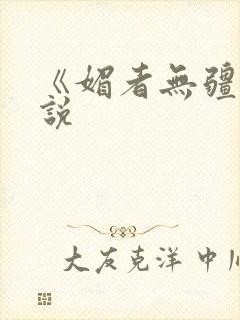 《媚者無疆
說
大友克洋 中